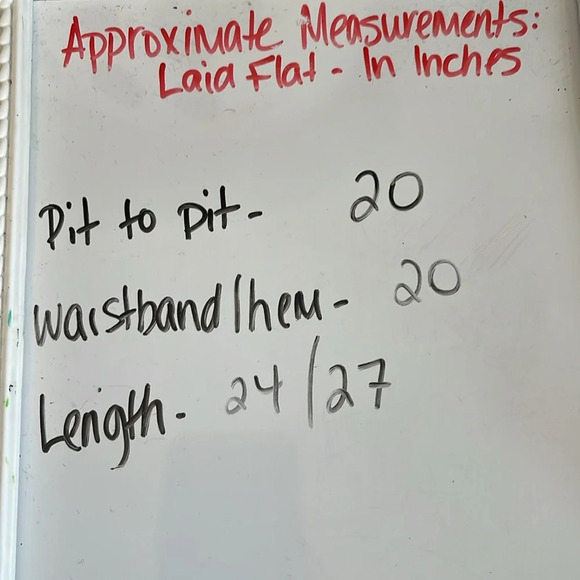 Approximate Measurements:
Laid Flat - In Inches
Pit to pit - 20
Waistband/hem - 20
Length - 24/27